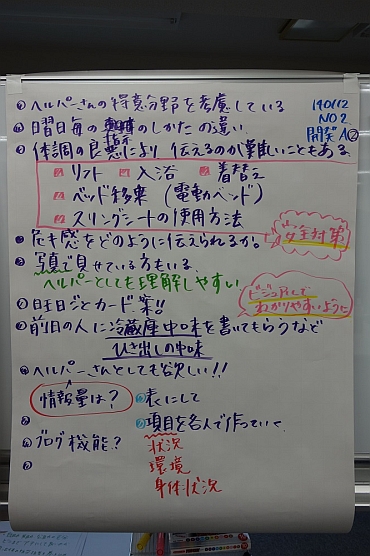 ヘルパーさんの得意分野を考慮している
140112
NO2
開発A②
日曜日毎の指示のしかたの違い
体調の良悪により伝えるのが難しいこともある
リフト 入浴 着替え
ベッド移乗(電動ベッド)
スリングシートの使用方法
安全対策
危キ感をどのように伝えられるか。
写真で見せている方もいる
ヘルパーとしても理解しやすい
ビジュアルで
わかりやすいように
日ごとカード案!!
前日の人に冷蔵庫中味を書いてもらうなど
ひき出しの中味
ヘルパーさんとしても欲しい!!
情報量は?
表にして
項目を各人で作っていく
ブログ機能?
状況
環境
身体状況